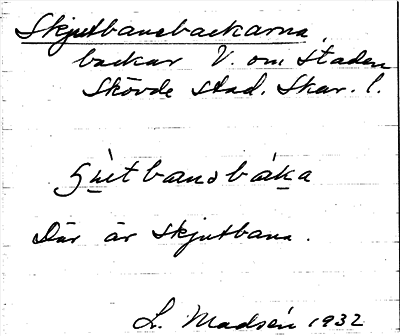 Skjutbanebackarna,
backar V. om staden
Skövde stad. Skar. l.
Där är skjutbana.
L. Madsén 1932